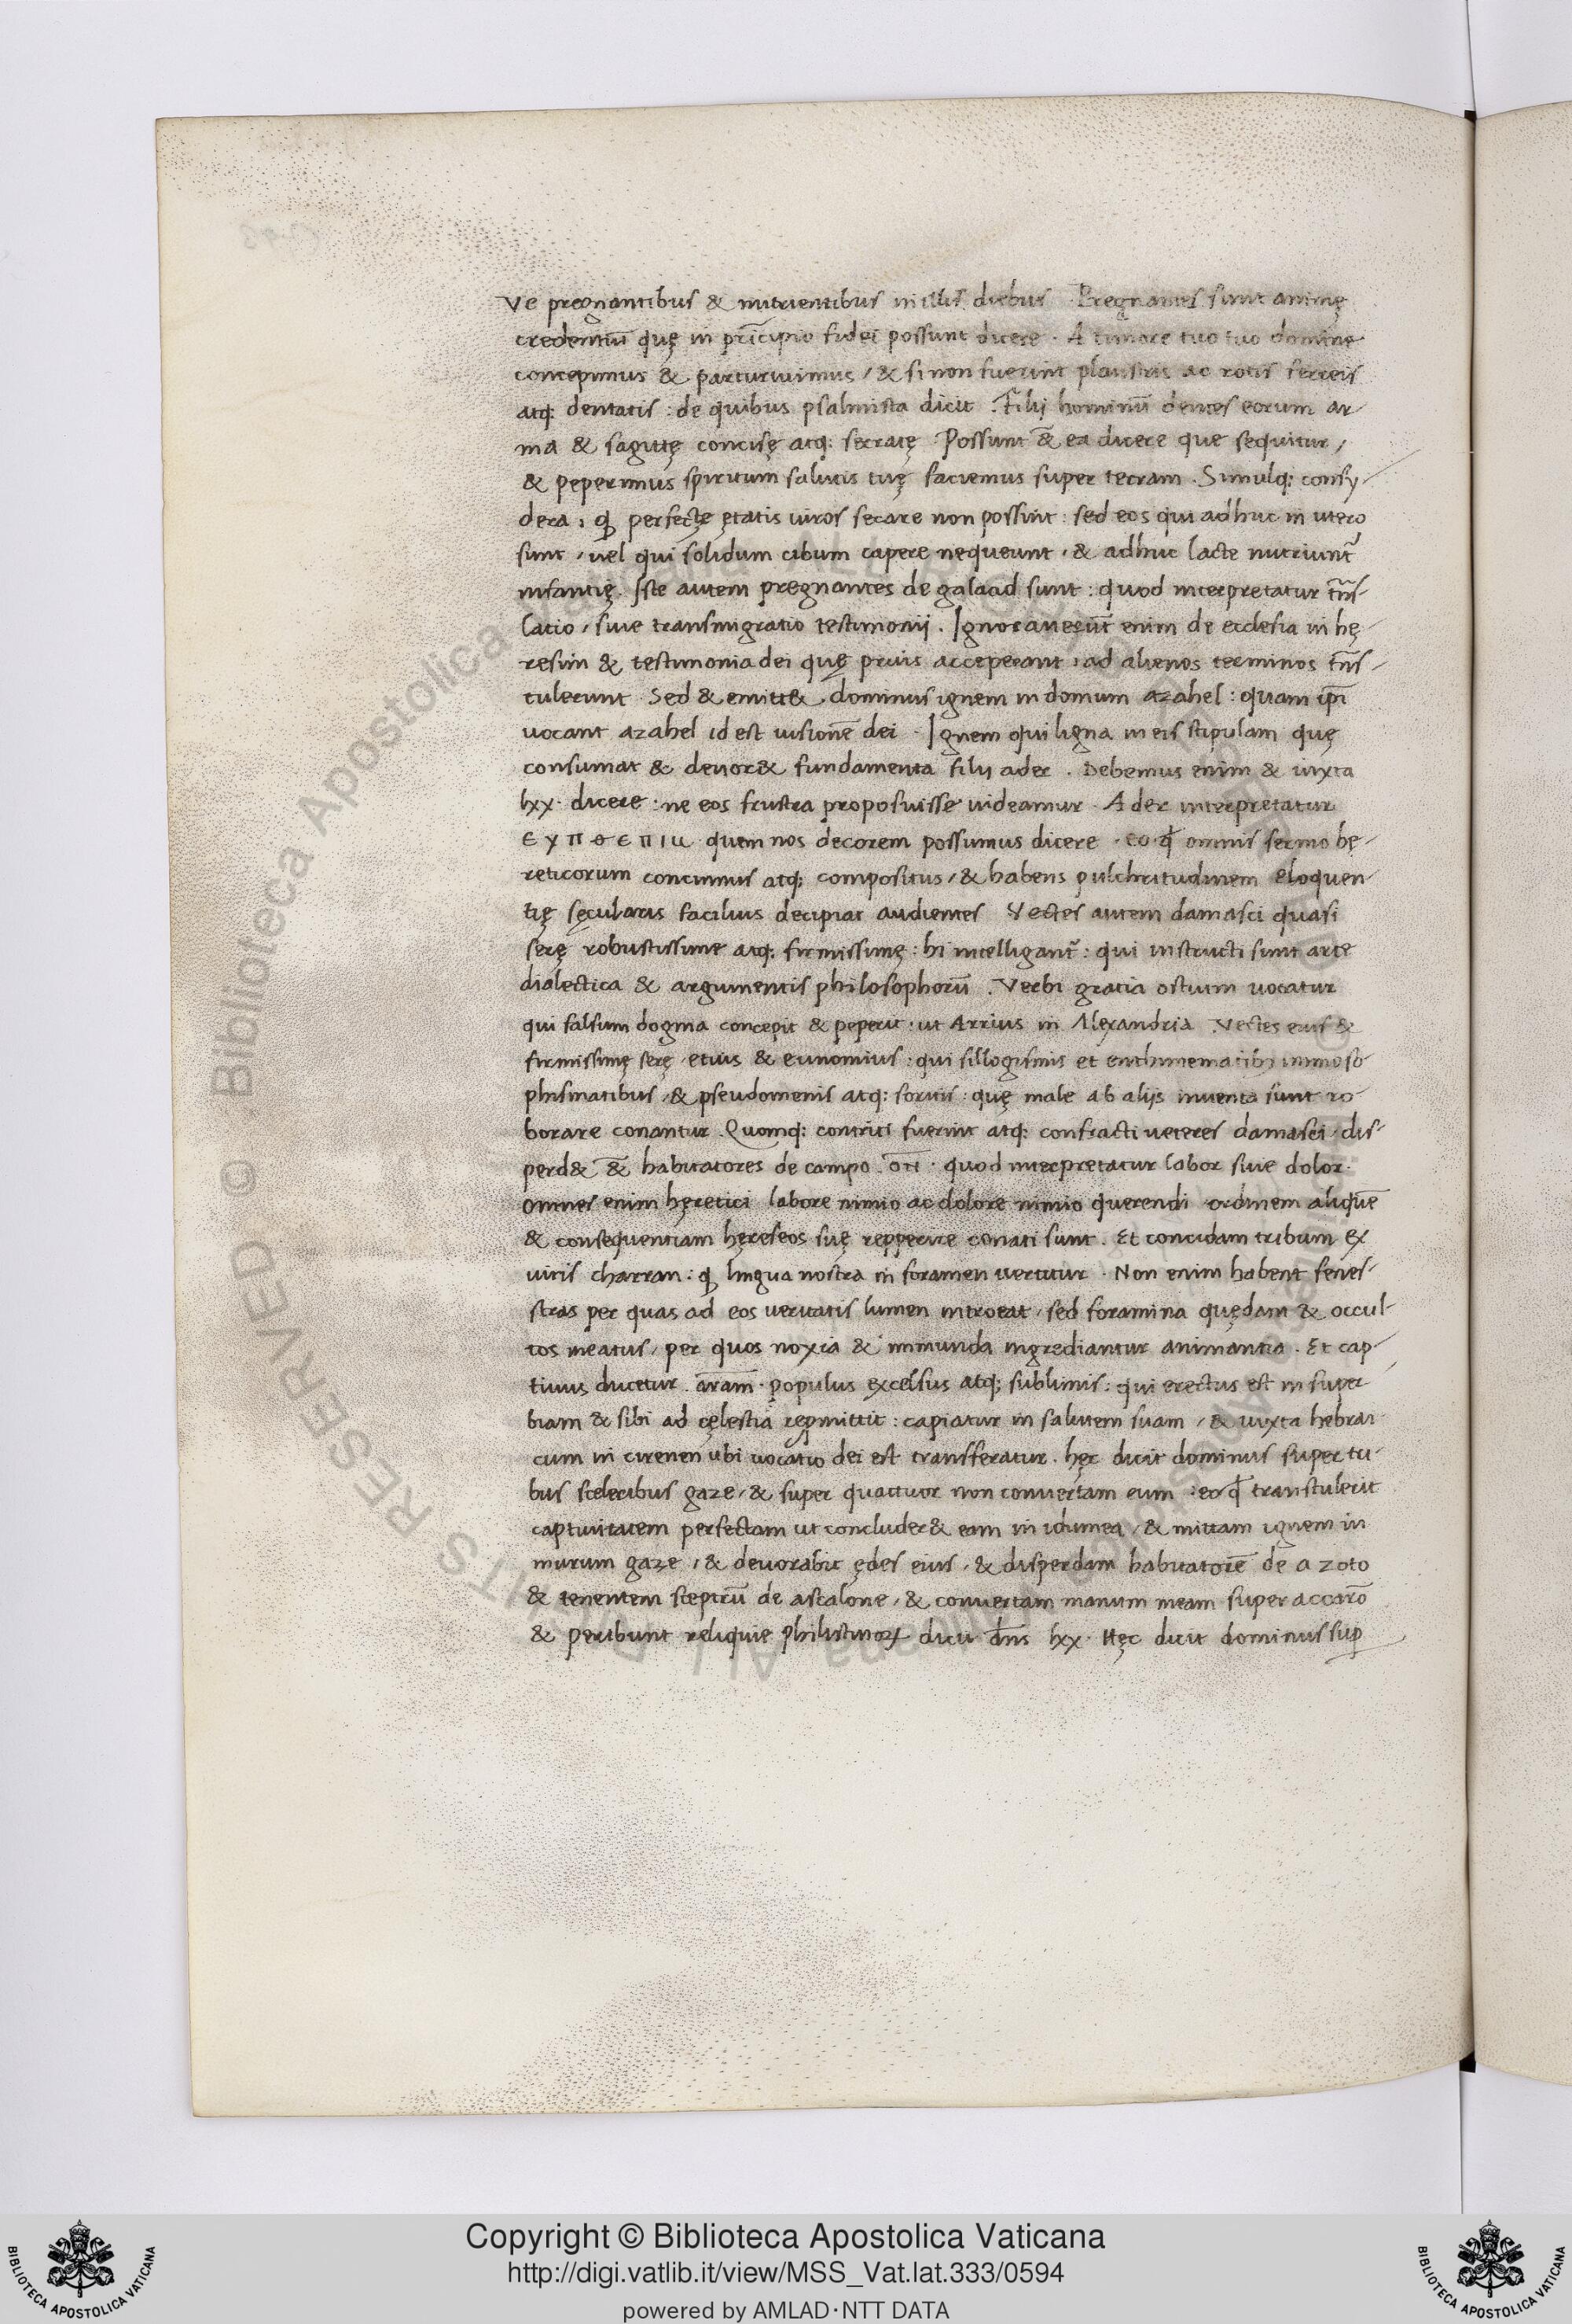 Ve pregnantibus & nutrientibus in illis diebus. Pregnantes sunt animę
credentiū quę in prīcipio fidei possunt dicere. A timore tuo tuo domine
concepimus & parturiuimus, & si non fuerint plaustris ac rotis ferreis
atq; dentatis: de quibus psalmista dicit. Filij hominū dentes eorum ar-
ma & sagittę concisę atq; serratę. Possunt & ea dicere que sequitur,
& peperimus spiritum salutis tuę faciemus super terram. Simulq; consy-
dera, ꝙ perfectę ętatis uiros secare non possint: sed eos qui adhuc in utero
sunt, uel qui solidum cibum capere nequeunt, & adhuc lacte nutriunt᷑
infantię. Iste autem pregnantes de galaad sunt: quod interpretatur trās-
latio, siue transmigratio testimonij. Ignorauerūt enim de ecclesia in hę-
resim & testimonia dei quę prius acceperant, ad alienos terminos trās-
tulerunt. Sed & emitt& dominus ignem in domum azahel: quam ip̄i
uocant azahel id est uisionē dei. Ignem qui ligna in eis stipulam quę
consumat & deuor& fundamenta filij ader. Debemus enim & iuxta
lxx. dicere: ne eos frustra proposuisse uideamur. Ader interpretatur
quem nos decorem possumus dicere. eo ꝙ omnis sermo hę-
reticorum concinnus atq; compositus, & habens pulchritudinem eloquen-
tię sęcularis facilius decipiat audientes. Vectes autem damasci quasi
serę robustissime atq; firmissimę: hi intelligant᷑: qui instructi sunt arte
dialectica & argumentis philosophorū. Verbi gratia ostium uocatur
qui falsum dogma concepit & peperit: ut Arrius in Alexandria. Vectes eius &
firmissimę serę. etius & eunomius: qui sillogismis et enthimematib; immo so-
phismatibus, & pseudomenis atq; soritis: quę male ab alijs inuenta sunt ro-
borare conantur. Quomq; contriti fuerint atq; confracti ueteres damasci. dis-
perd& & habitatores de campo. on. quod interpretatur labor siue dolor.
Omnes enim hęretici labore nimio ac dolore nimio querendi ordinem aliquē
& consequentiam hęreseos suę repperire conati sunt. Et concidam tribum ex
uiris charran: ꝙ lingua nostra in foramen uertitur. Non enim habent fenes-
stras per quas ad eos ueritatis lumen introeat, sed foramina quędam & occul-
tos meatus, per quos noxia & immunda ingrediantur animantia. Et cap-
tiuus ducetur. aram. populus excelsus atq; sublimis: qui erectus est in super
biam & sibi ad cęlestia repmittit: capiatur in salutem suam, & iuxta hebrai-
cum in cirenen ubi uocatio dei est transferatur. hęc dicit dominus super tri-
bus sceleribus gaze, & super quattuor non conuertam eum: eo ꝙ transtulerit
captiuitatem perfectam ut concluder& eam in idumea, & mittam ignem in
murum gaze, & deuorabit ędes eius, & disperdam habitatorē de azoto
& tenentem sceptrū de ascalone, & conuertam manum meam super accarō
& peribunt reliquie philistinoꝝ dicit dn̄s lxx. Hęc dicit dominus suꝑ
Copyright © Biblioteca Apostolica Vaticana
http://digi.vatlib.it/view/MSS_Vat.lat.333/0594
powered by AMLAD·NTT DATA